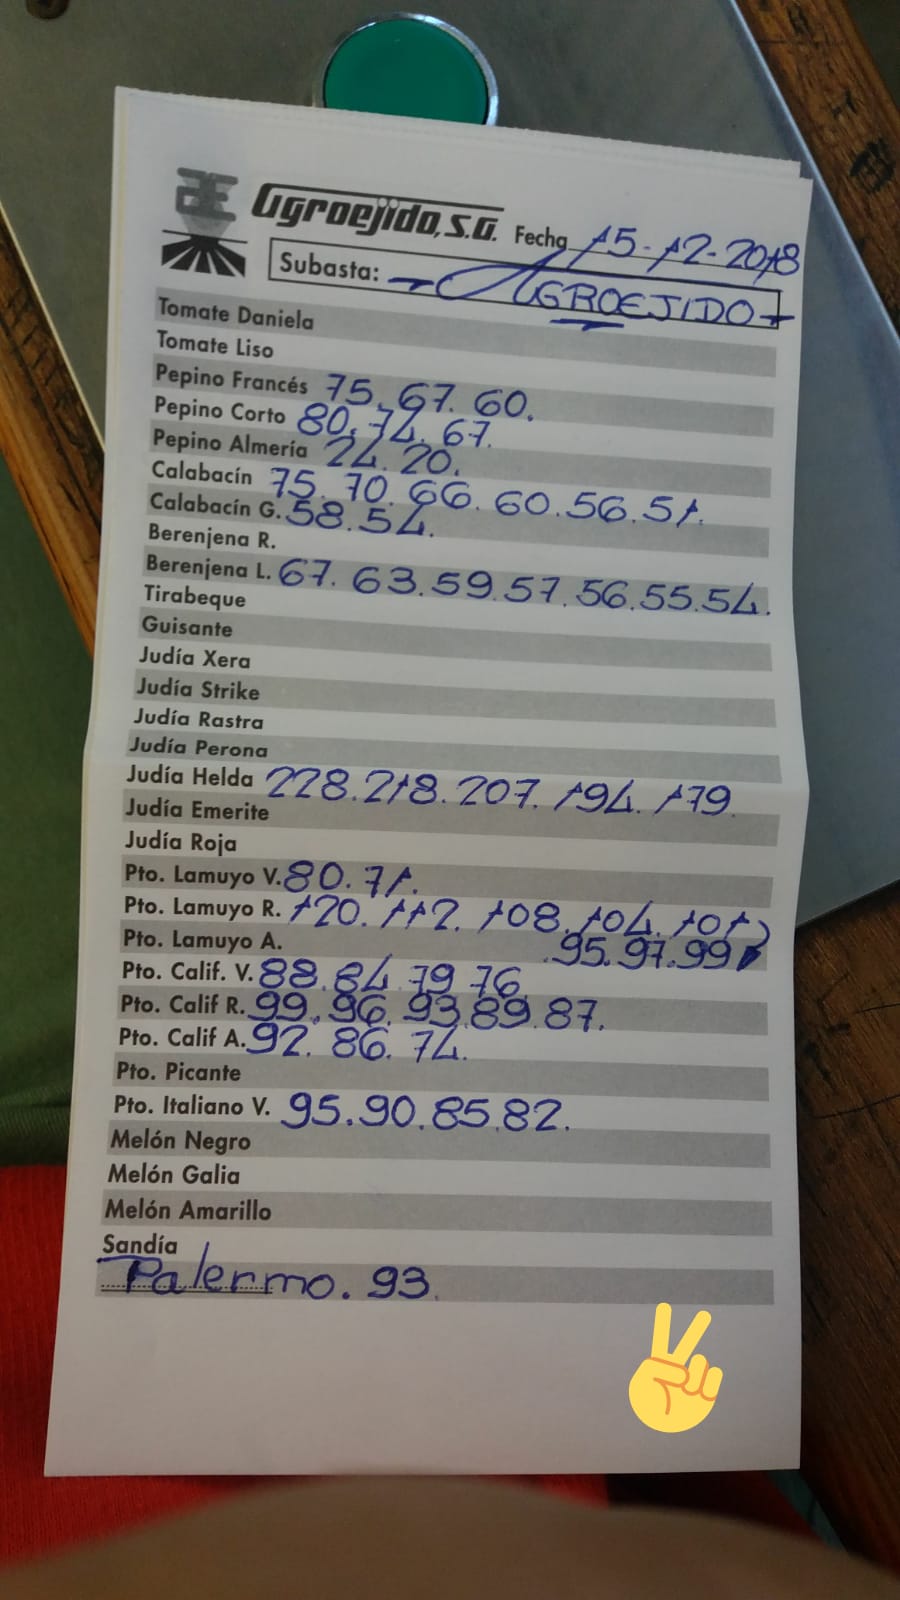 Agroejido, S.A. Fecha 15-12-2018
Subasta: - AGROEJIDO -
Tomate Daniela
Tomate Liso
Pepino Francés 75. 67. 60.
Pepino Corto 80. 74. 67.
Pepino Almería 24. 20.
Calabacín 75. 70. 66. 60. 56. 51.
Calabacín G. 58. 54.
Berenjena R.
Berenjena L. 67. 63. 59. 57. 56. 55. 54.
Tirabeque
Guisante
Judía Xera
Judía Strike
Judía Rastra
Judía Perona
Judía Helda 228. 218. 207. 194. 179.
Judía Emerite
Judía Roja
Pto. Lamuyo V. 80. 71.
Pto. Lamuyo R. 120. 112. 108. 104. 101
Pto. Lamuyo A. .95. 97. 99
Pto. Calif. V. 88. 84. 79. 76
Pto. Calif R. 99. 96. 93. 89. 87.
Pto. Calif A. 92. 86. 74.
Pto. Picante
Pto. Italiano V. 95. 90. 85. 82.
Melón Negro
Melón Galia
Melón Amarillo
Sandía
Palermo. 93.